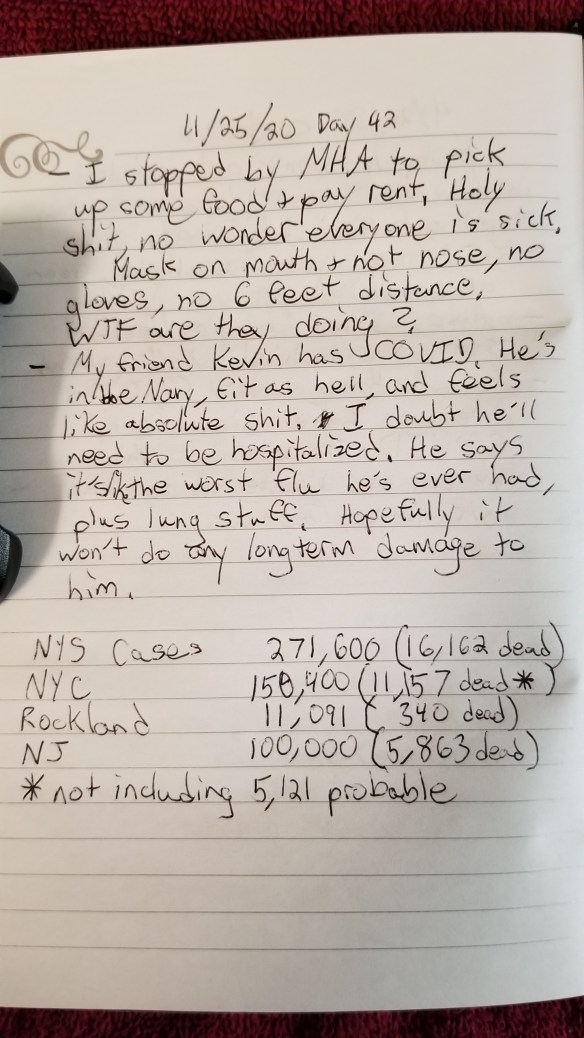 4/25/20 Day 42
- I stopped by MHA to pick
up some food + pay rent, Holy
shit, no wonder everyone is sick.
Mask on mouth + not nose, no
gloves, no 6 feet distance,
WTF are they doing?
- My friend Kevin has COVID. He's
in the Navy, fit as hell, and feels
like absolute shit. I doubt he'll
need to be hospitalized. He says
it's like the worst flu he's ever had,
plus lung stuff. Hopefully it
won't do any longterm damage to
him.
NYS Cases 271,600 (16,162 dead)
NYC 150,400 (11,157 dead*)
Rockland 11,091 (340 dead)
NJ 100,000 (5,863 dead)
* not including 5,121 probable